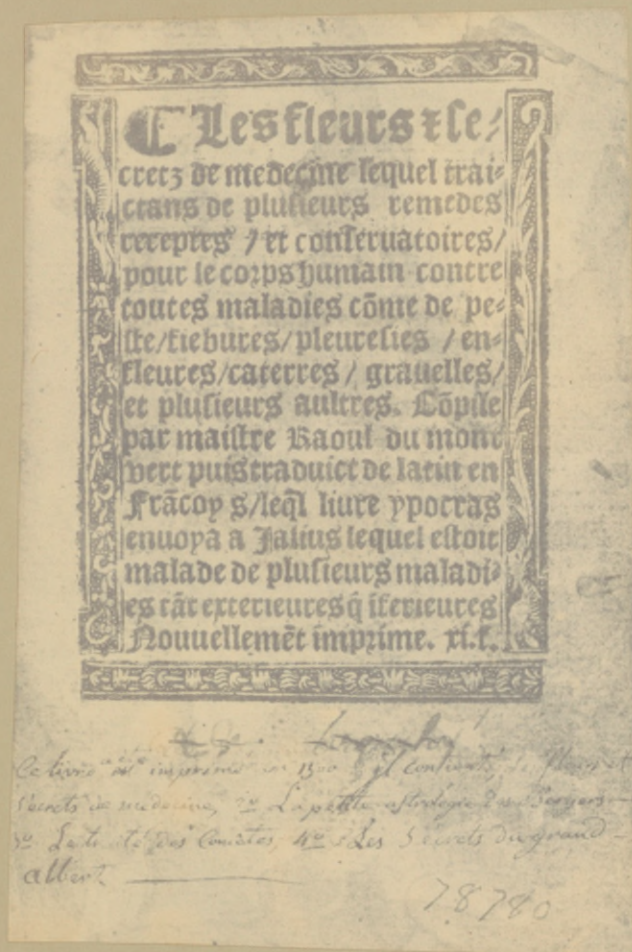 ❡ Les fleurs ⁊ se⸗
cretz de medecine lequel trai⸗
ctans de plusieurs remedes
receptes / et conseruatoires/
pour le corps humain contre
toutes maladies cõme de pe⸗
ste/fiebures/pleuresies / en⸗
fleures/caterres/ grauelles/
et plusieurs aultres. Cõpile
par maistre Raoul du mont
vert puis traduict de latin en
Frãcoy s/leq̄l liure ypocras
enuoya a Jalius lequel estoit
malade de plusieurs maladi⸗
es tãt exterieures q̄ iterieures
Nouuellemẽt imprime. xi.f.
Ce livre imprimé en 1500 il contient fleurs et
Secrets de medecine, 2º La petite astrologie des Bergers
3º des Cometes, 4º Les Secrets du grand
albert
78780